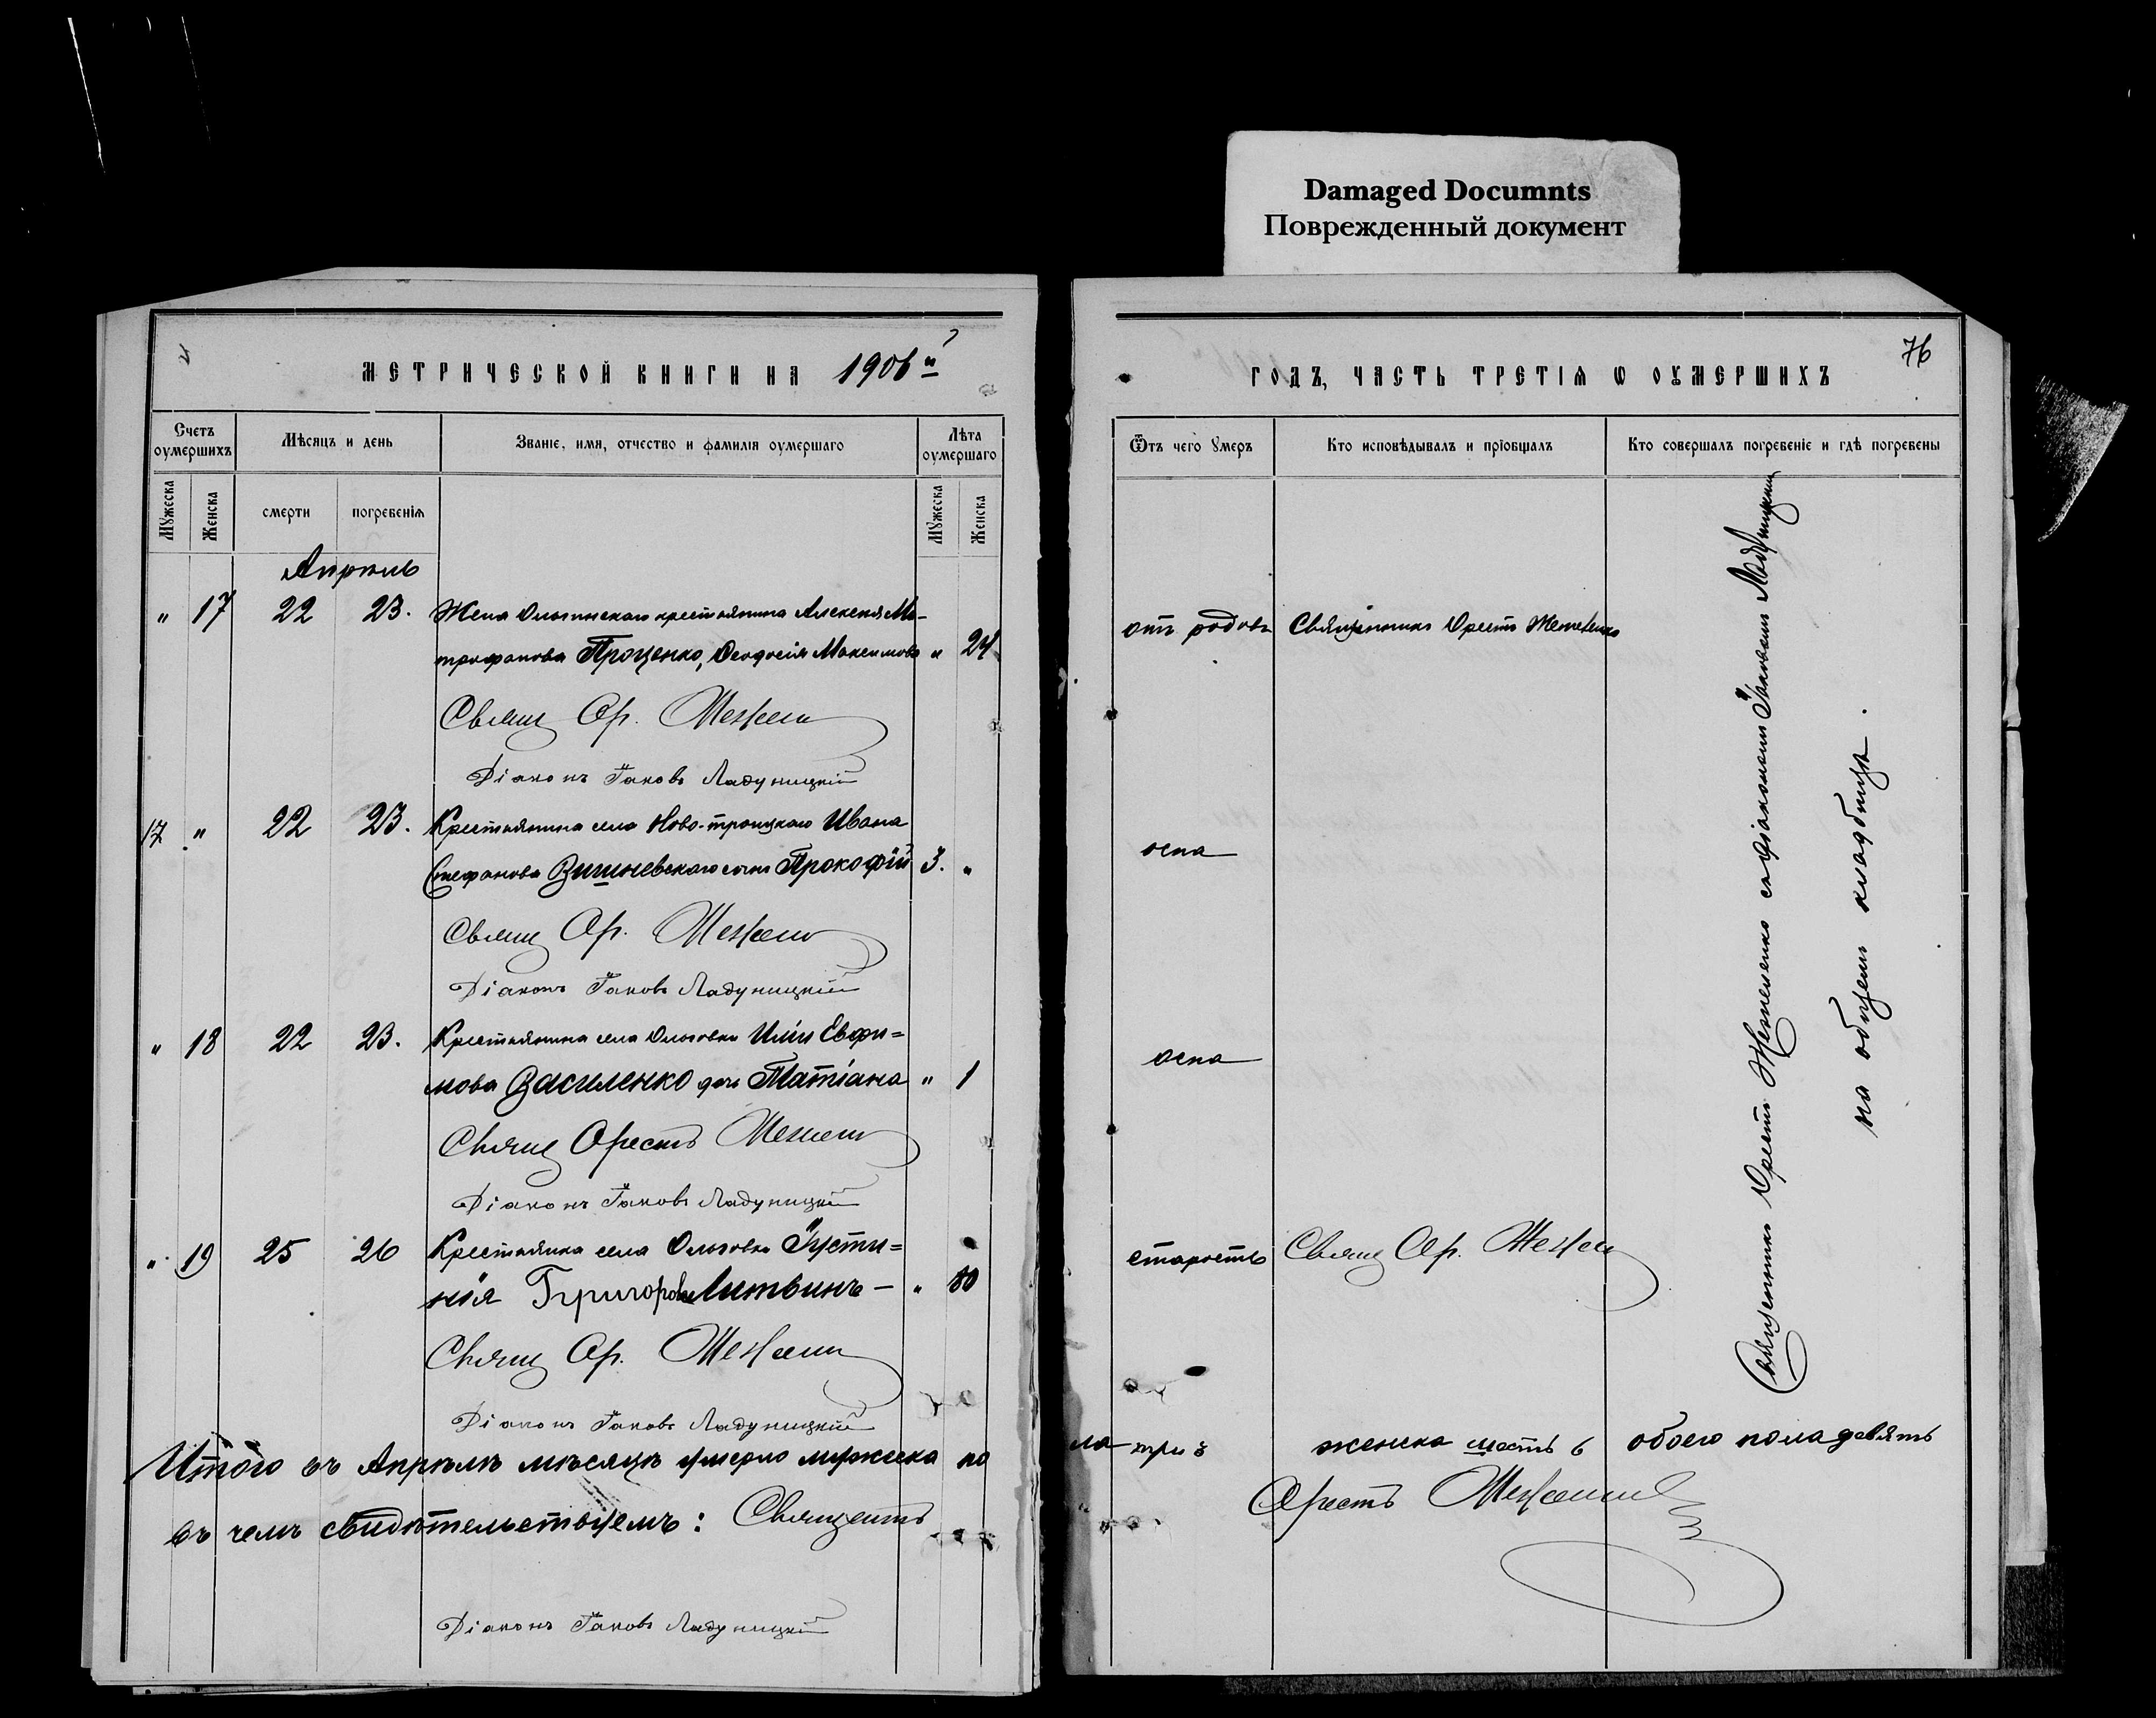 Damaged Documnts
Поврежденный документ
МЕТРИЧЕСКОЙ КНИГИ НА 1906й
Счетъ оумершихъ
Мѣсяцъ и день
Званіе, имя, отчество и фамилія оумершаго
Лѣта оумершаго
Мужеска
Женска
смерти
погребенія
Мужеска
Женска
Апрѣль
" 17 22 23. Жена Ольгинскаго крестьянина Алексея Ми-
трофанова Проценко, Ѳеодосія Максимова " 24
Свящ Ор.
Діаконъ Іаковъ Ладуницкій
17 " 22 23. Крестьянина села Ново-троицкаго Ивана
Стефанова Вишневскаго сынъ Прокофій 3. "
Свящ Ор.
Діаконъ Іаковъ Ладуницкій
" 18 22 23. Крестьянина села Ольговки Иліи Евфи=
мова Василенко дочь Татіана " 1
Свящ Орестъ
Діаконъ Іаковъ Ладуницкій
" 19 25 26 Крестьянка села Ольговки Іусти=
нія Григорова Литвинъ — " 80
Свящ Ор.
Діаконъ Іаковъ Ладуницкій
Итого въ Апрѣлѣ мѣсяцѣ умерло мужеска по
въ чемъ свидѣтельствуемъ: Священникъ
Діаконъ Іаковъ Ладуницкій
76
ГОДЪ, ЧАСТЬ ТРЕТІЯ Ѡ ОУМЕРШИХЪ
Ѿтъ чего умеръ
Кто исповѣдывалъ и пріобщалъ
Кто совершалъ погребеніе и гдѣ погребены
отъ родовъ Священникъ Орестъ
оспа
оспа
старость Свящ Ор.
Священникъ Орестъ съ діакономъ Іаковомъ Ладуницкимъ
на общемъ кладбищѣ.
ла три 3 женска шесть 6 обоего пола девять
Орестъ